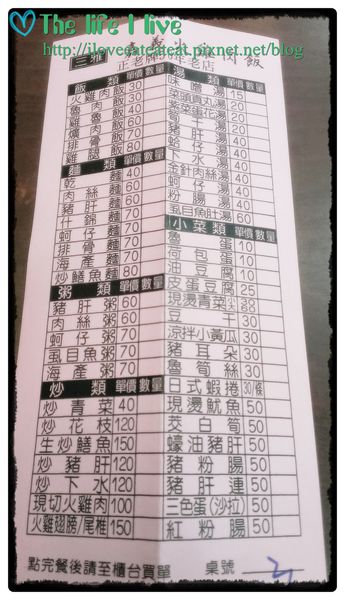 The life I live
http://iloveeateateat.pixnet.net/blog
肉飯
正老牌
老店
飯 類 單價 數量
火雞肉飯 30
魯肉飯
雞腿飯 80
麵 類 單價 數量
乾麵 40
肉絲麵 60
豬肝麵 60
什錦麵 60
蚵仔麵 70
排骨麵 70
海產麵 70
炒鱔魚麵 80
粥 類 單價 數量
豬肝粥 60
肉絲粥 60
蚵仔粥 70
虱目魚粥 70
海產粥 70
炒 類 單價 數量
炒青菜 40
炒花枝 120
生炒鱔魚 150
炒豬肝 120
炒下水 120
現切火雞肉 100
火雞翅膀/尾椎 150
湯 類 單價 數量
菜頭貢丸湯 20
紫菜蛋花湯 20
豬肝湯 40
蛤仔湯
下水湯 40
金針肉絲湯 40
蚵仔湯 40
粉腸湯 40
虱目魚肚湯 60
小菜類 單價 數量
魯蛋 10
荷包蛋 10
油豆腐 10
皮蛋豆腐 25
現燙青菜
豆干 30
涼拌小黃瓜 30
豬耳朵 30
魯筍絲 30
日式蝦捲 30/條
現燙魷魚 50
茭白筍 50
蠔油豬肝 50
豬粉腸 50
豬肝連 50
三色蛋(沙拉) 50
紅粉腸 50
點完餐後請至櫃台買單 桌號